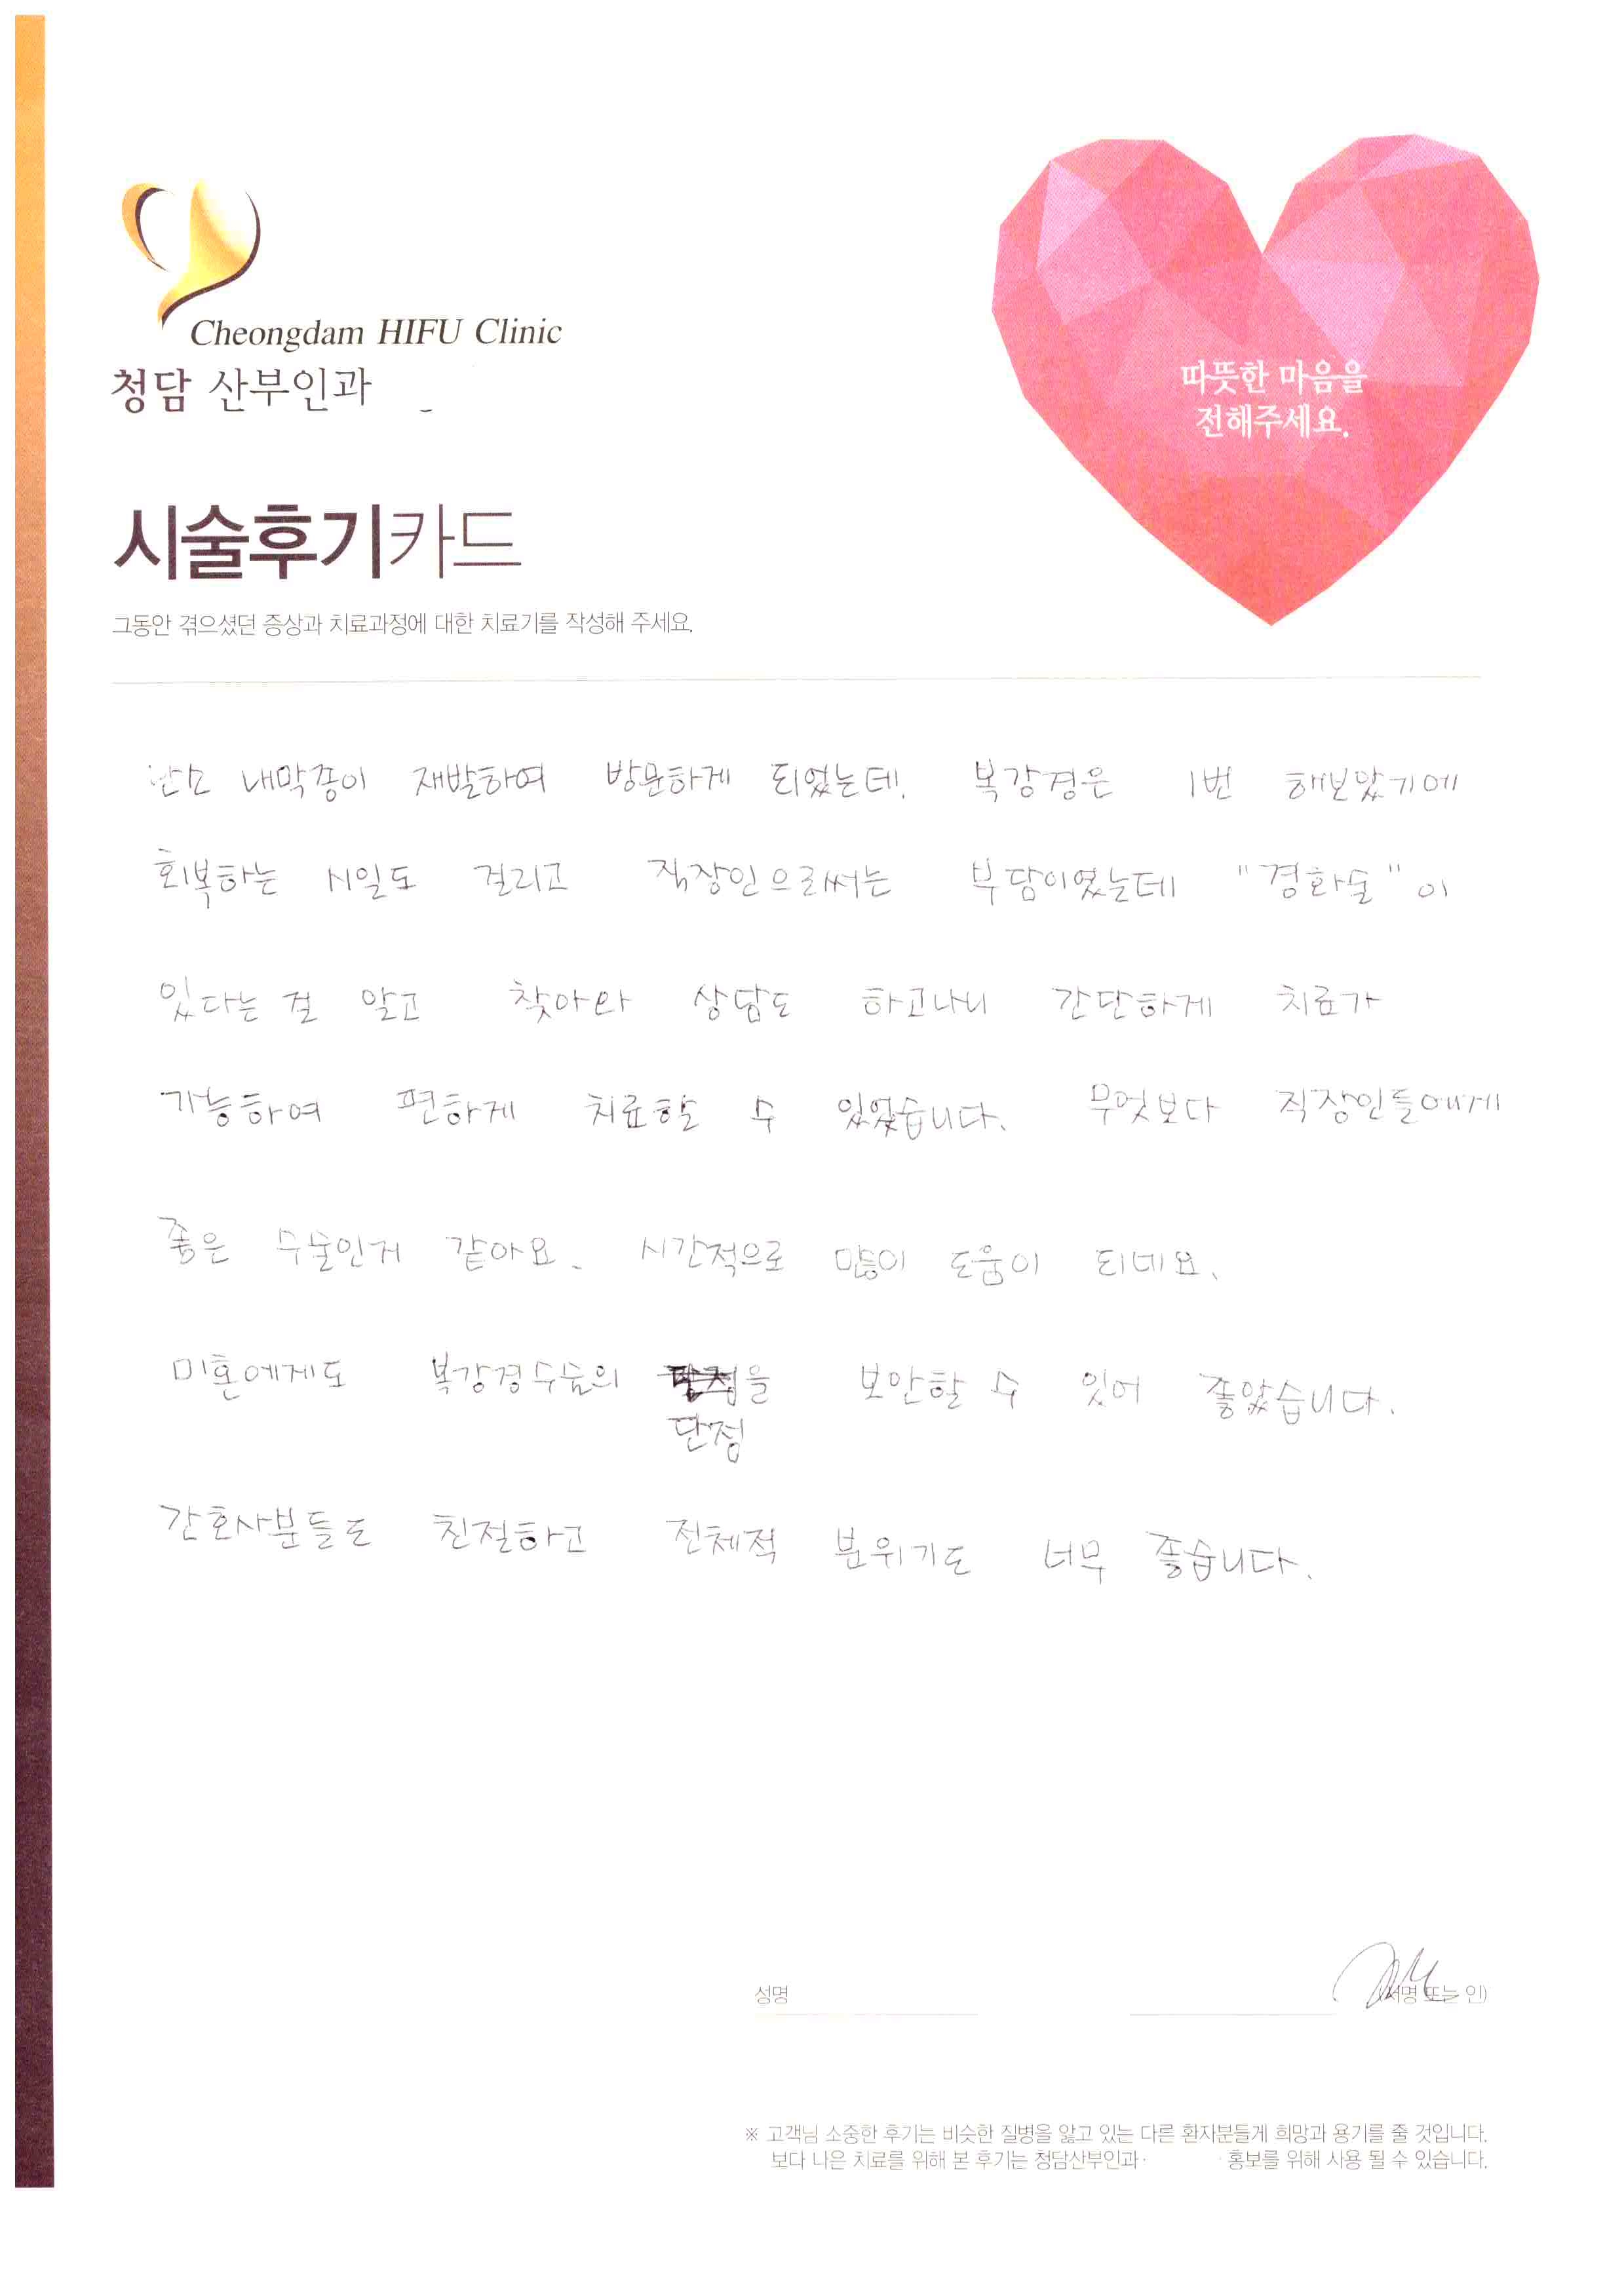 Cheongdam HIFU Clinic
청담 산부인과
따뜻한 마음을
전해주세요.
시술후기카드
그동안 겪으셨던 증상과 치료과정에 대한 치료기를 작성해 주세요.
난소 내막종이 재발하여 방문하게 되었는데. 복강경은 1번 해보았기에
회복하는 시일도 걸리고 직장인으로써는 부담이었는데 "경화술"이
있다는 걸 알고 찾아와 상담도 하고나니 간단하게 치료가
가능하여 편하게 치료할 수 있었습니다. 무엇보다 직장인들에게
좋은 수술인거 같아요. 시간적으로 많이 도움이 되네요.
미혼에게도 복강경수술의 을 보안할 수 있어 좋았습니다.
단점
간호사분들도 친절하고 전체적 분위기도 너무 좋습니다.
성명 (서명 또는 인)
※ 고객님 소중한 후기는 비슷한 질병을 앓고 있는 다른 환자분들게 희망과 용기를 줄 것입니다.
보다 나은 치료를 위해 본 후기는 청담산부인과 홍보를 위해 사용 될 수 있습니다.